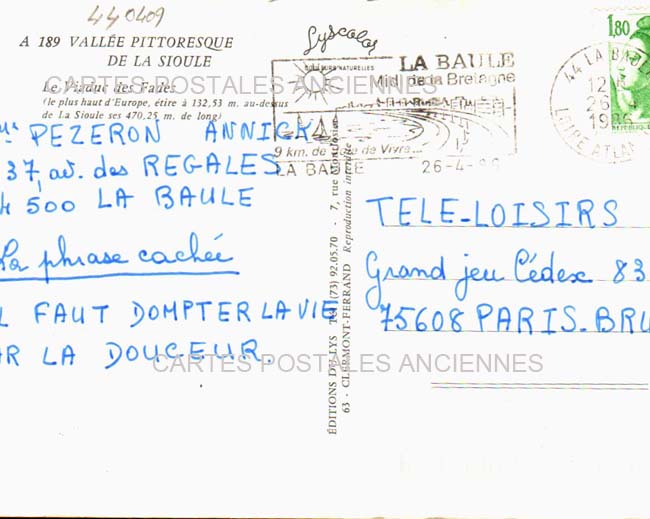 440409
A 189 VALLÉE PITTORESQUE
DE LA SIOULE
Le Viaduc des Fades
(le plus haut d'Europe, étire à 132,53 m. au-dessus
de La Sioule ses 470,25 m. de long)
PEZERON ANNICK
37, av. des REGALES
500 LA BAULE
La phrase cachée
L FAUT DOMPTER LA VIE
AR LA DOUCEUR.
Lyscolor
COULEURS NATURELLES
LA BAULE
Midi de la Bretagne
9 km. de Joie de Vivre...
LA BAULE
26-4-86
44 LA BAULE
12 H
26 4
1986
LOIRE ATLAN
1,80
REPUBLIQUE
ÉDITIONS DE LYS Tél. (73) 92.05.70 - 7, rue Montlosier
63 - CLERMONT-FERRAND Reproduction interdite
TELE-LOISIRS
Grand jeu Cédex 83
75608 PARIS-BRU
CARTES POSTALES ANCIENNES
CARTES POSTALES ANCIENNES